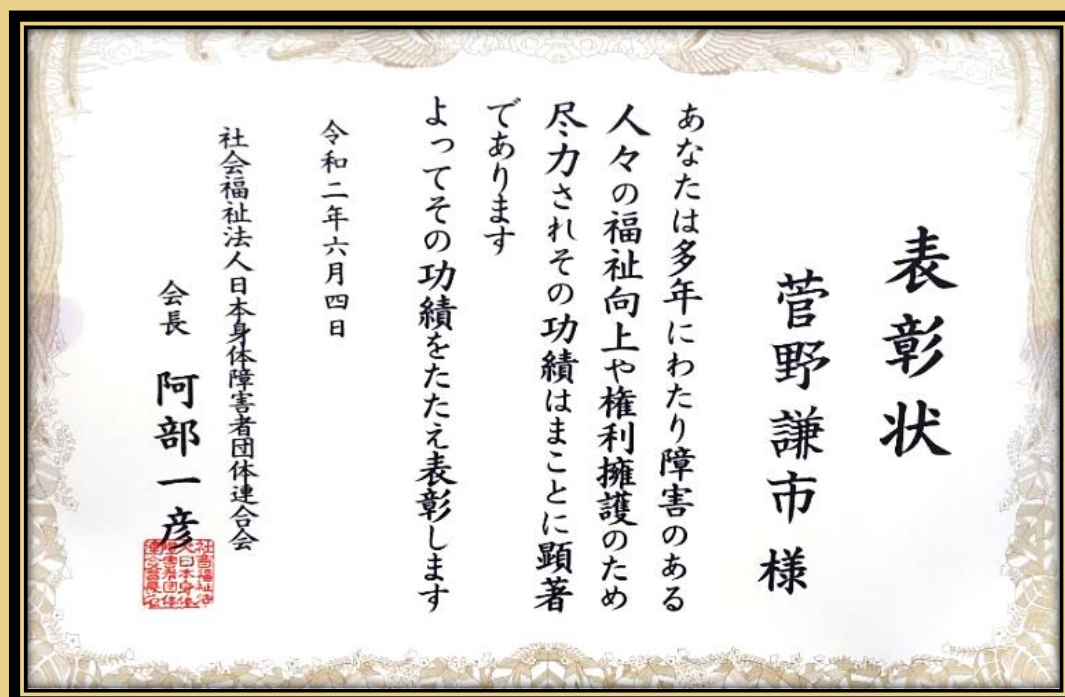 表彰状
菅野謙市 様
あなたは多年にわたり障害のある
人々の福祉向上や権利擁護のため
尽力されその功績はまことに顕著
であります
よってその功績をたたえ表彰します
令和二年六月四日
社会福祉法人日本身体障害者団体連合会
会長 阿部一彦